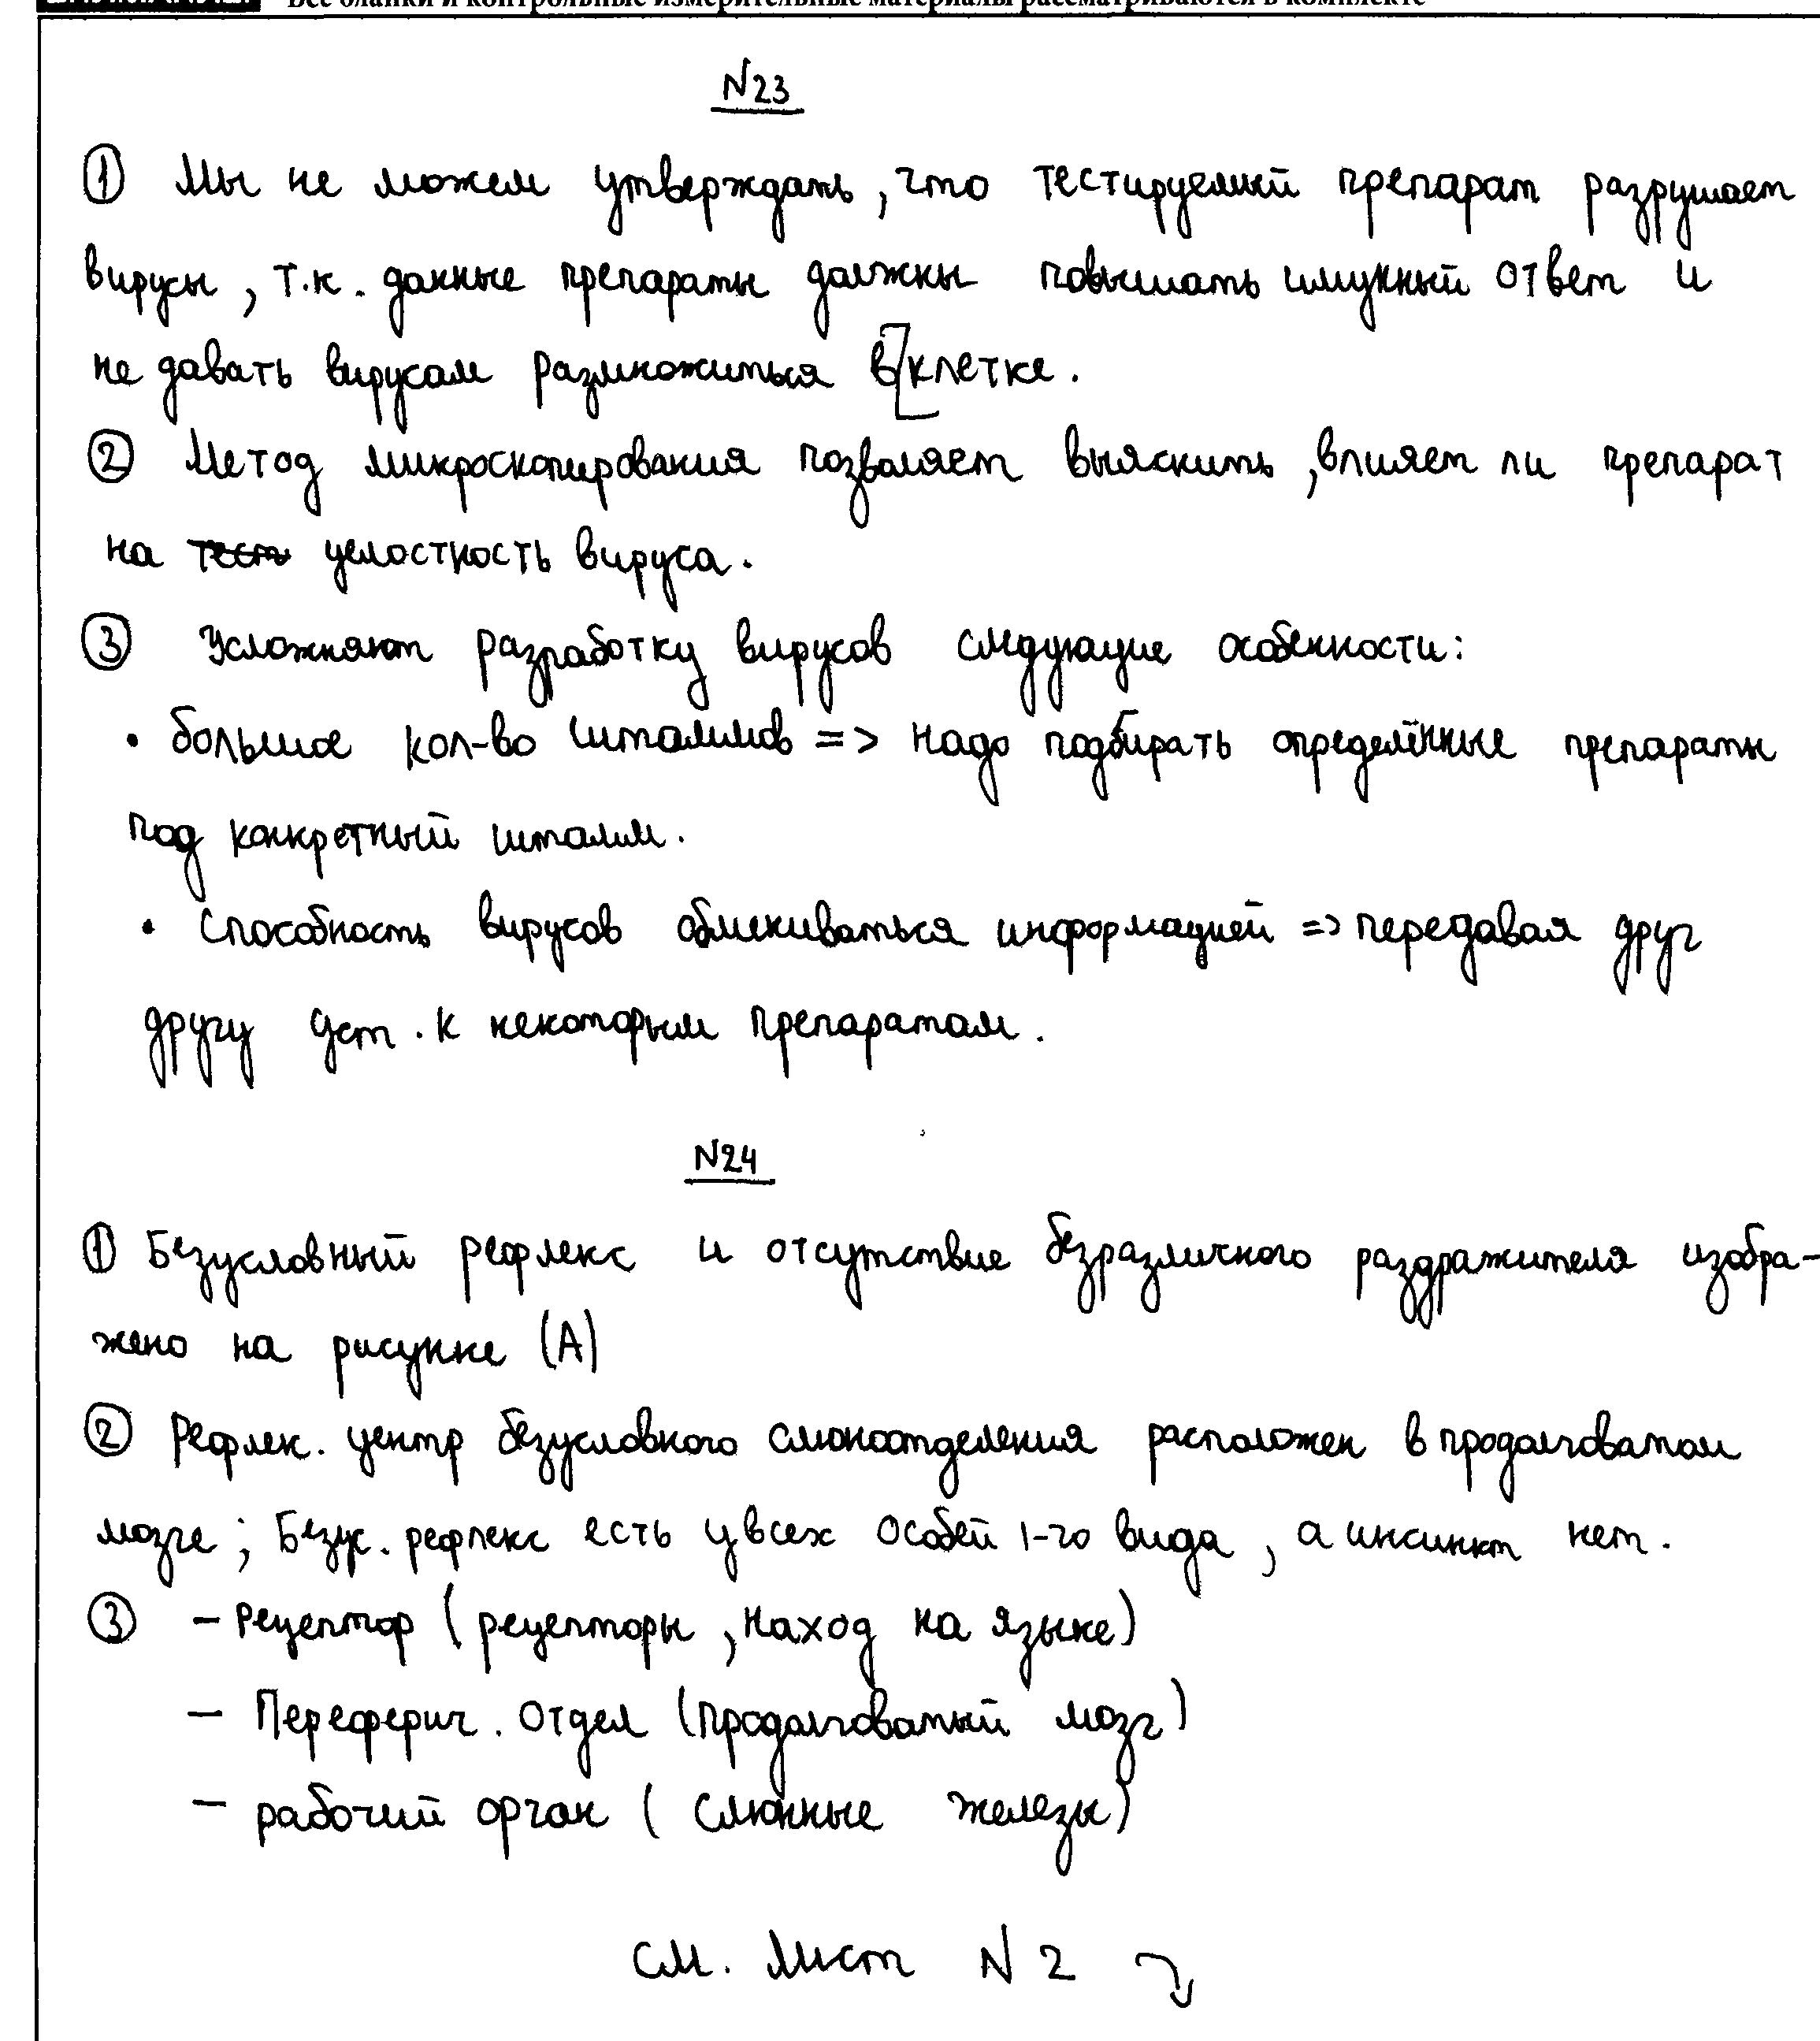 Все бланки и контрольные измерительные материалы рассматриваются в комплекте
N23
① Мы не можем утверждать, что тестируемый препарат разрушает
вирусы, т.к. данные препараты должны повышать имунный ответ и
не давать вирусам размножиться в клетке.
② Метод микроскопирования позволяет выяснить, влияет ли препарат
на тест целостность вируса.
③ Усложняют разработку вирусов следующие особенности:
• большое кол-во штаммов => надо подбирать определённые препараты
под конкретный штамм.
• Способность вирусов обмениваться информацией => передавая друг
другу уст. к некоторым препаратам.
N24
① Безусловный рефлекс и отсутствие безразличного раздражителя изобра-
жено на рисунке (А)
② Рефлек. центр безусловного слюноотделения расположен в продолговатом
мозге; Безус. рефлекс есть у всех особей 1-го вида, а инсинкт нет.
③ – Рецептор (рецепторы, наход на языке)
– Переферич. отдел (продолговатый мозг)
– рабочий орган (слюнные железы)
см. лист N 2